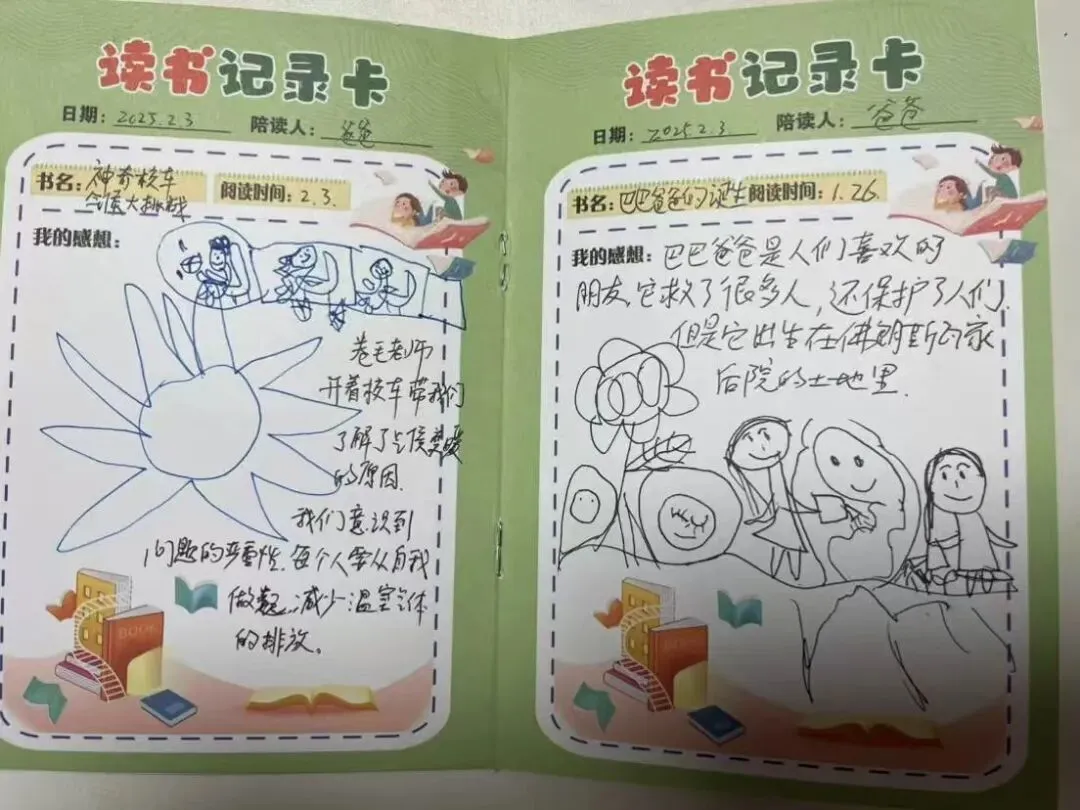 读书记录卡
日期: 2025.2.3 陪读人: 爸爸
书名: 神奇校车
气候大挑战
阅读时间: 2.3.
我的感想:
卷毛老师
开着校车带我们
了解了气侯变暖
的原因.
我们意识到
问题的严重性.每个人要从自我
做起.减少温室气体
的排放。
BOOK
读书记录卡
日期: 2025.2.3. 陪读人: 爸爸
书名: 巴巴爸爸的诞生 阅读时间: 1.26.
我的感想: 巴巴爸爸是人们喜欢的
朋友,它救了很多人,还保护了人们.
但是它出生在佛朗斯的家
后院的土地里.
BOOK